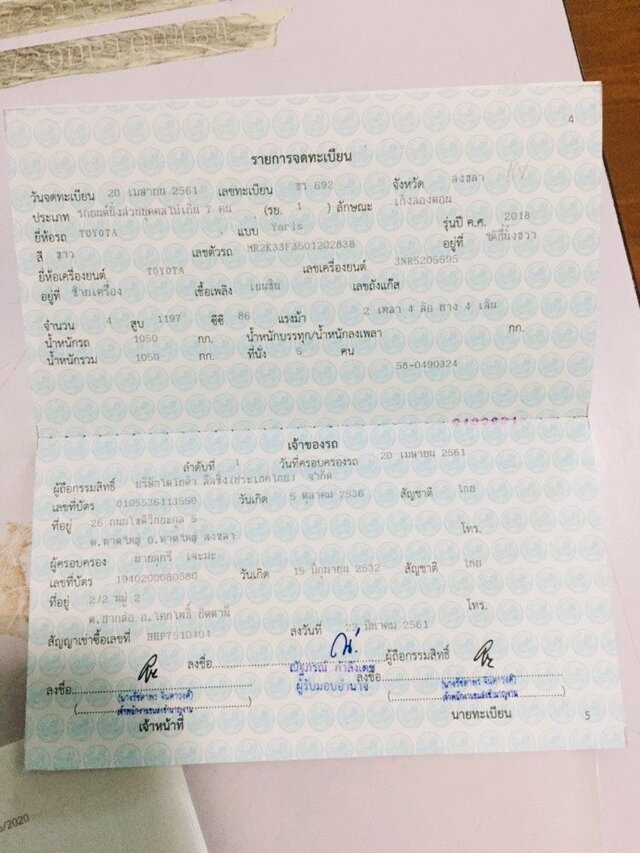 4
รายการจดทะเบียน
วันจดทะเบียน 20 เมษายน 2561 เลขทะเบียน ขร 692 จังหวัด สงขลา
ประเภท รถยนต์นั่งส่วนบุคคลไม่เกิน 7 คน (รย. 1 ) ลักษณะ เก๋งสองตอน
ยี่ห้อรถ TOYOTA แบบ Yaris รุ่นปี ค.ศ. 2018
สี ขาว เลขตัวรถ MR2K33F3501202838 อยู่ที่ ใต้ที่นั่งขวา
ยี่ห้อเครื่องยนต์ TOYOTA เลขเครื่องยนต์ 3NR5205595
อยู่ที่ ซ้ายเครื่อง เชื้อเพลิง เบนซิน เลขถังแก๊ส
จำนวน 4 สูบ 1197 ซีซี 86 แรงม้า 2 เพลา 4 ล้อ ยาง 4 เส้น
น้ำหนักรถ 1050 กก. น้ำหนักบรรทุก/น้ำหนักลงเพลา กก.
น้ำหนักรวม 1050 กก. ที่นั่ง 5 คน
58-0490324
เจ้าของรถ
ลำดับที่ 1 วันที่ครอบครองรถ 20 เมษายน 2561
ผู้ถือกรรมสิทธิ์ บริษัทโตโยต้า ลีสซิ่ง(ประเทศไทย) จำกัด
เลขที่บัตร 0105536113550 วันเกิด 5 ตุลาคม 2536 สัญชาติ ไทย
ที่อยู่ 26 ถนนโชติวิทยะกุล 5 โทร.
ต.หาดใหญ่ อ.หาดใหญ่ สงขลา
ผู้ครอบครอง นายสุกรี เจะมะ
เลขที่บัตร 1940200080580 วันเกิด 15 มิถุนายน 2532 สัญชาติ ไทย
ที่อยู่ 2/2 หมู่ 2 โทร.
ต.ปากล่อ อ.โคกโพธิ์ ปัตตานี
สัญญาเช่าซื้อเลขที่ HHP7510404 ลงวันที่ 22 มีนาคม 2561
ลงชื่อ ผู้ถือกรรมสิทธิ์
ณัฐภรณ์ กำลังเดช
ผู้รับมอบอำนาจ
ลงชื่อ ลงชื่อ
เจ้าพนักงานขนส่งชำนาญงาน เจ้าพนักงานขนส่งชำนาญงาน
เจ้าหน้าที่ นายทะเบียน
5
/2020